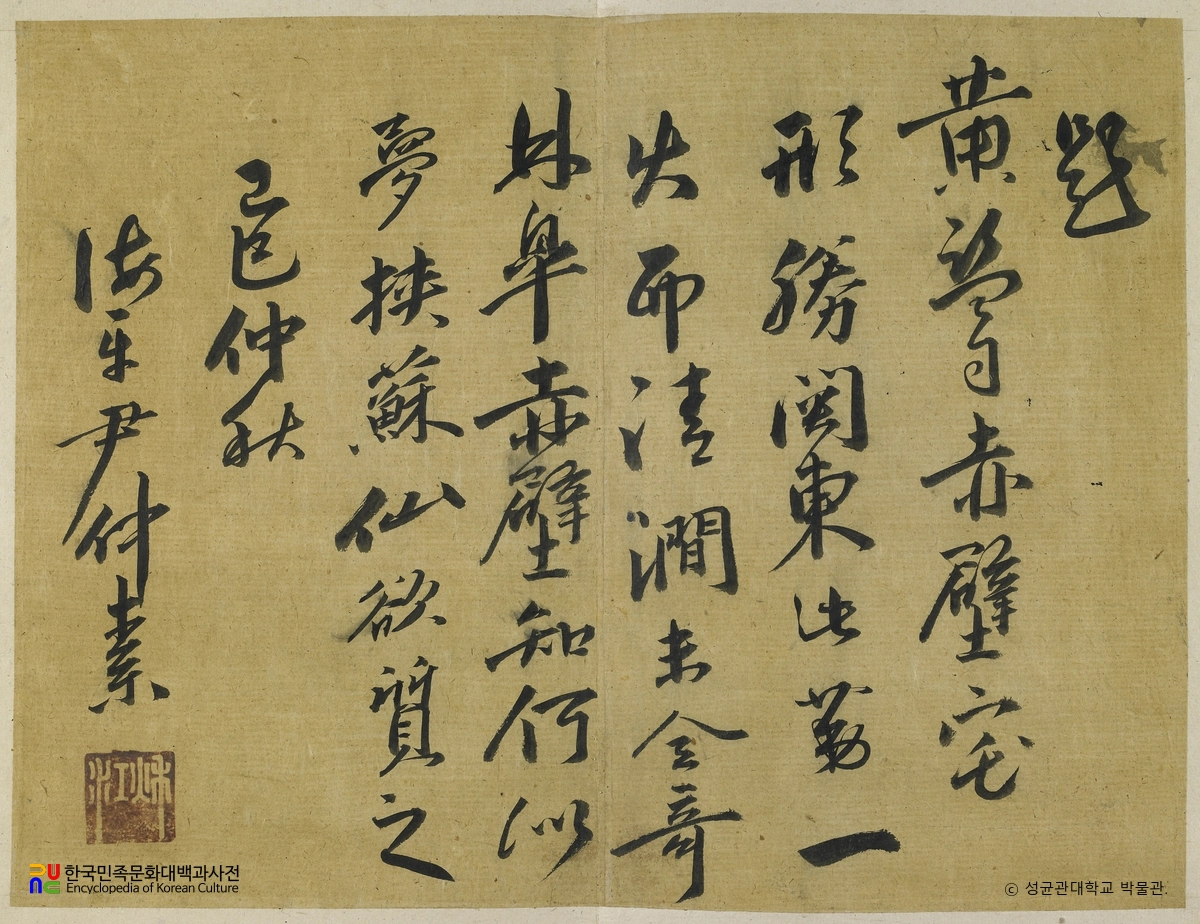 題
黃監司赤壁宅
形勝関東此一
而清澗未全奇
皐赤壁知何似
夢挾蘇仙欲質之
己巳仲秋
海平尹仲素
한국민족문화대백과사전
Encyclopedia of Korean Culture
ⓒ 성균관대학교 박물관.